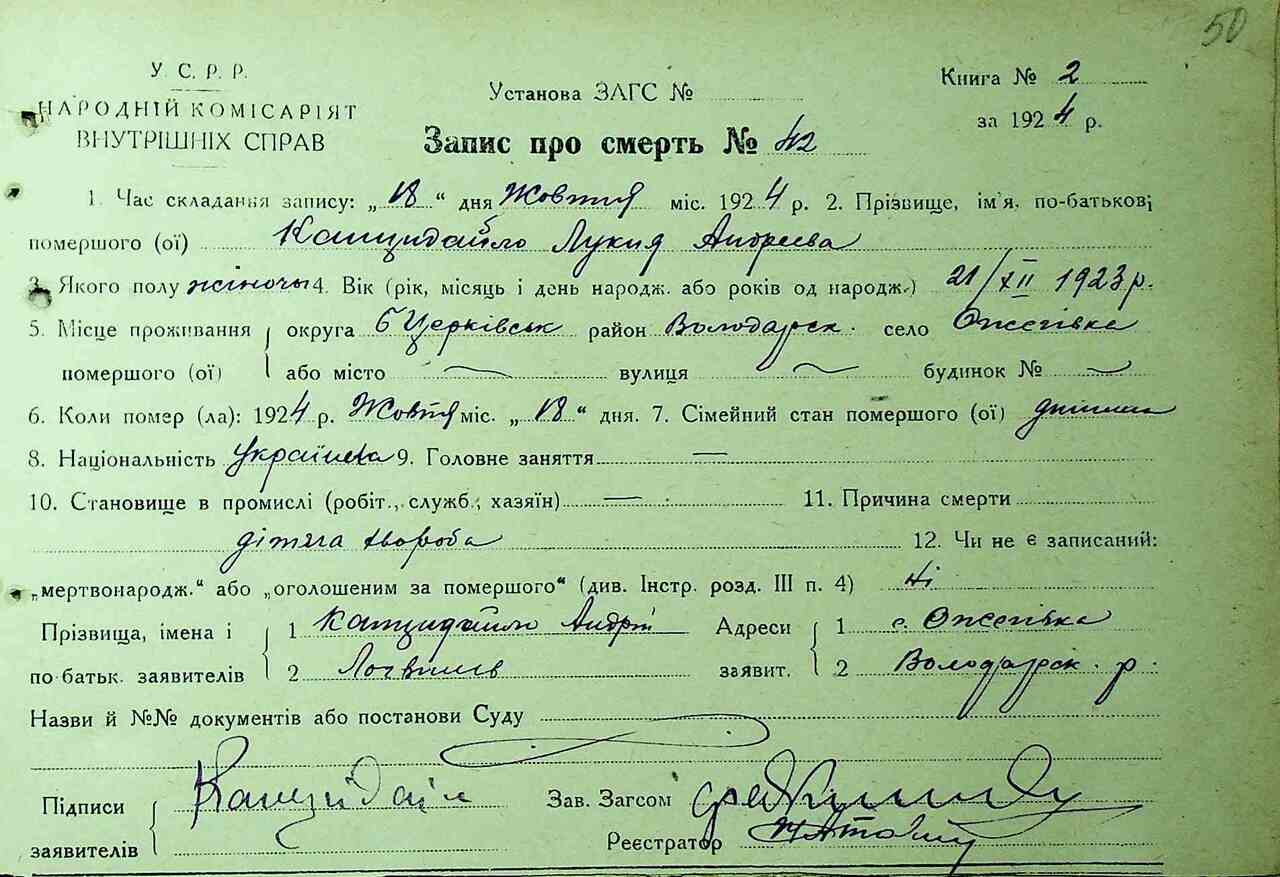 50
У. С. Р. Р.
НАРОДНІЙ КОМІСАРІЯТ
ВНУТРІШНІХ СПРАВ
Установа ЗАГС №
Книга № 2
за 1924 р.
Запис про смерть № 42
1. Час складання запису: „18“ дня Жовтня міс. 1924 р. 2. Прізвище, ім'я, по-батькові
помершого (ої) Лукия Андреева
3. Якого полу жіночы 4. Вік (рік, місяць і день народж. або років од народж.) 21/XII 1923 р.
5. Місце проживання округа Б Церківськ район Володарск. село Ожегівка
помершого (ої) або місто вулиця будинок №
6. Коли помер (ла): 1924 р. Жовтня міс. „18“ дня. 7. Сімейний стан помершого (ої)
8. Національність Українка 9. Головне заняття —
10. Становище в промислі (робіт., служб., хазяїн) — 11. Причина смерти
дітяча хвороба 12. Чи не є записаний:
„мертвонародж.“ або „оголошеним за помершого“ (див. Інстр. розд. III п. 4) Ні
Прізвища, імена і 1 Андрій Адреси 1 с. Ожегівка
по батьк. заявителів 2 заявит. 2 Володарск. р.
Назви й №№ документів або постанови Суду
Підписи Зав. Загсом
заявителів Реєстратор